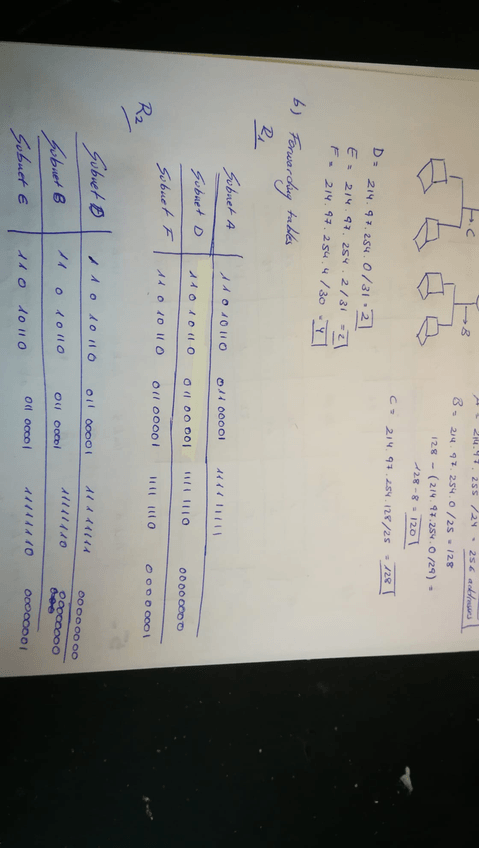 C
B
A = 214.97.255 /24 = 256 addresses
B = 214.97.254.0/25 = 128
128 - (214.97.254.0/29) =
128-8 = 120
C = 214.97.254.128/25 = 128
D = 214.97.254.0/31 = 2
E = 214.97.254.2/31 = 2
F = 214.97.254.4/30 = 4
b) Forwarding tables
R1
Subnet A 11010110 01100001 11111111
Subnet D 11010110 01100001 11111110 00000000
Subnet F 11010110 01100001 11111110 00000001
R2
Subnet D 11010110 01100001 11111111 00000000
Subnet B 11010110 01100001 11111110 00000000
Subnet E 11010110 01100001 11111110 00000001